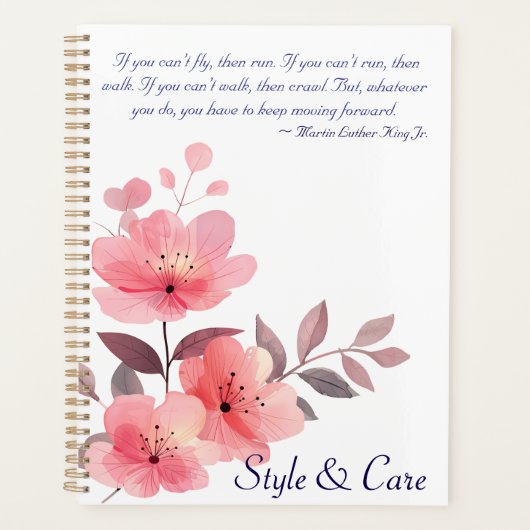 If you can't fly, then run. If you can't run, then
walk. If you can't walk, then crawl. But, whatever
you do, you have to keep moving forward.
~ Martin Luther King Jr.
Style & Care